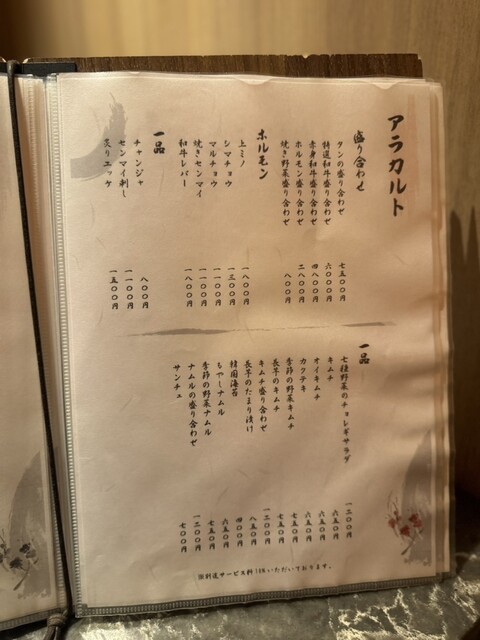 アラカルト
盛り合わせ
タンの盛り合わせ 七五〇〇円
特選和牛盛り合わせ 六〇〇〇円
赤身和牛盛り合わせ 四八〇〇円
ホルモン盛り合わせ 二八〇〇円
焼き野菜盛り合わせ 八〇〇円
ホルモン
上ミノ 一八〇〇円
シマチョウ 一三〇〇円
マルチョウ 一一〇〇円
焼きセンマイ 一一〇〇円
和牛レバー 一八〇〇円
一品
チャンジャ 八〇〇円
センマイ刺し 一一〇〇円
炙りユッケ 一五〇〇円
一品
七種野菜のチョレギサラダ 一二〇〇円
キムチ 六五〇円
オイキムチ 六五〇円
カクテキ 六五〇円
季節の野菜キムチ 七五〇円
長芋のキムチ 七五〇円
キムチ盛り合わせ 一二〇〇円
長芋のたまり漬け 八五〇円
韓国海苔 四〇〇円
もやしナムル 六五〇円
季節の野菜ナムル 七五〇円
ナムルの盛り合わせ 一二〇〇円
サンチュ 七〇〇円
※別途サービス料10%いただいております。